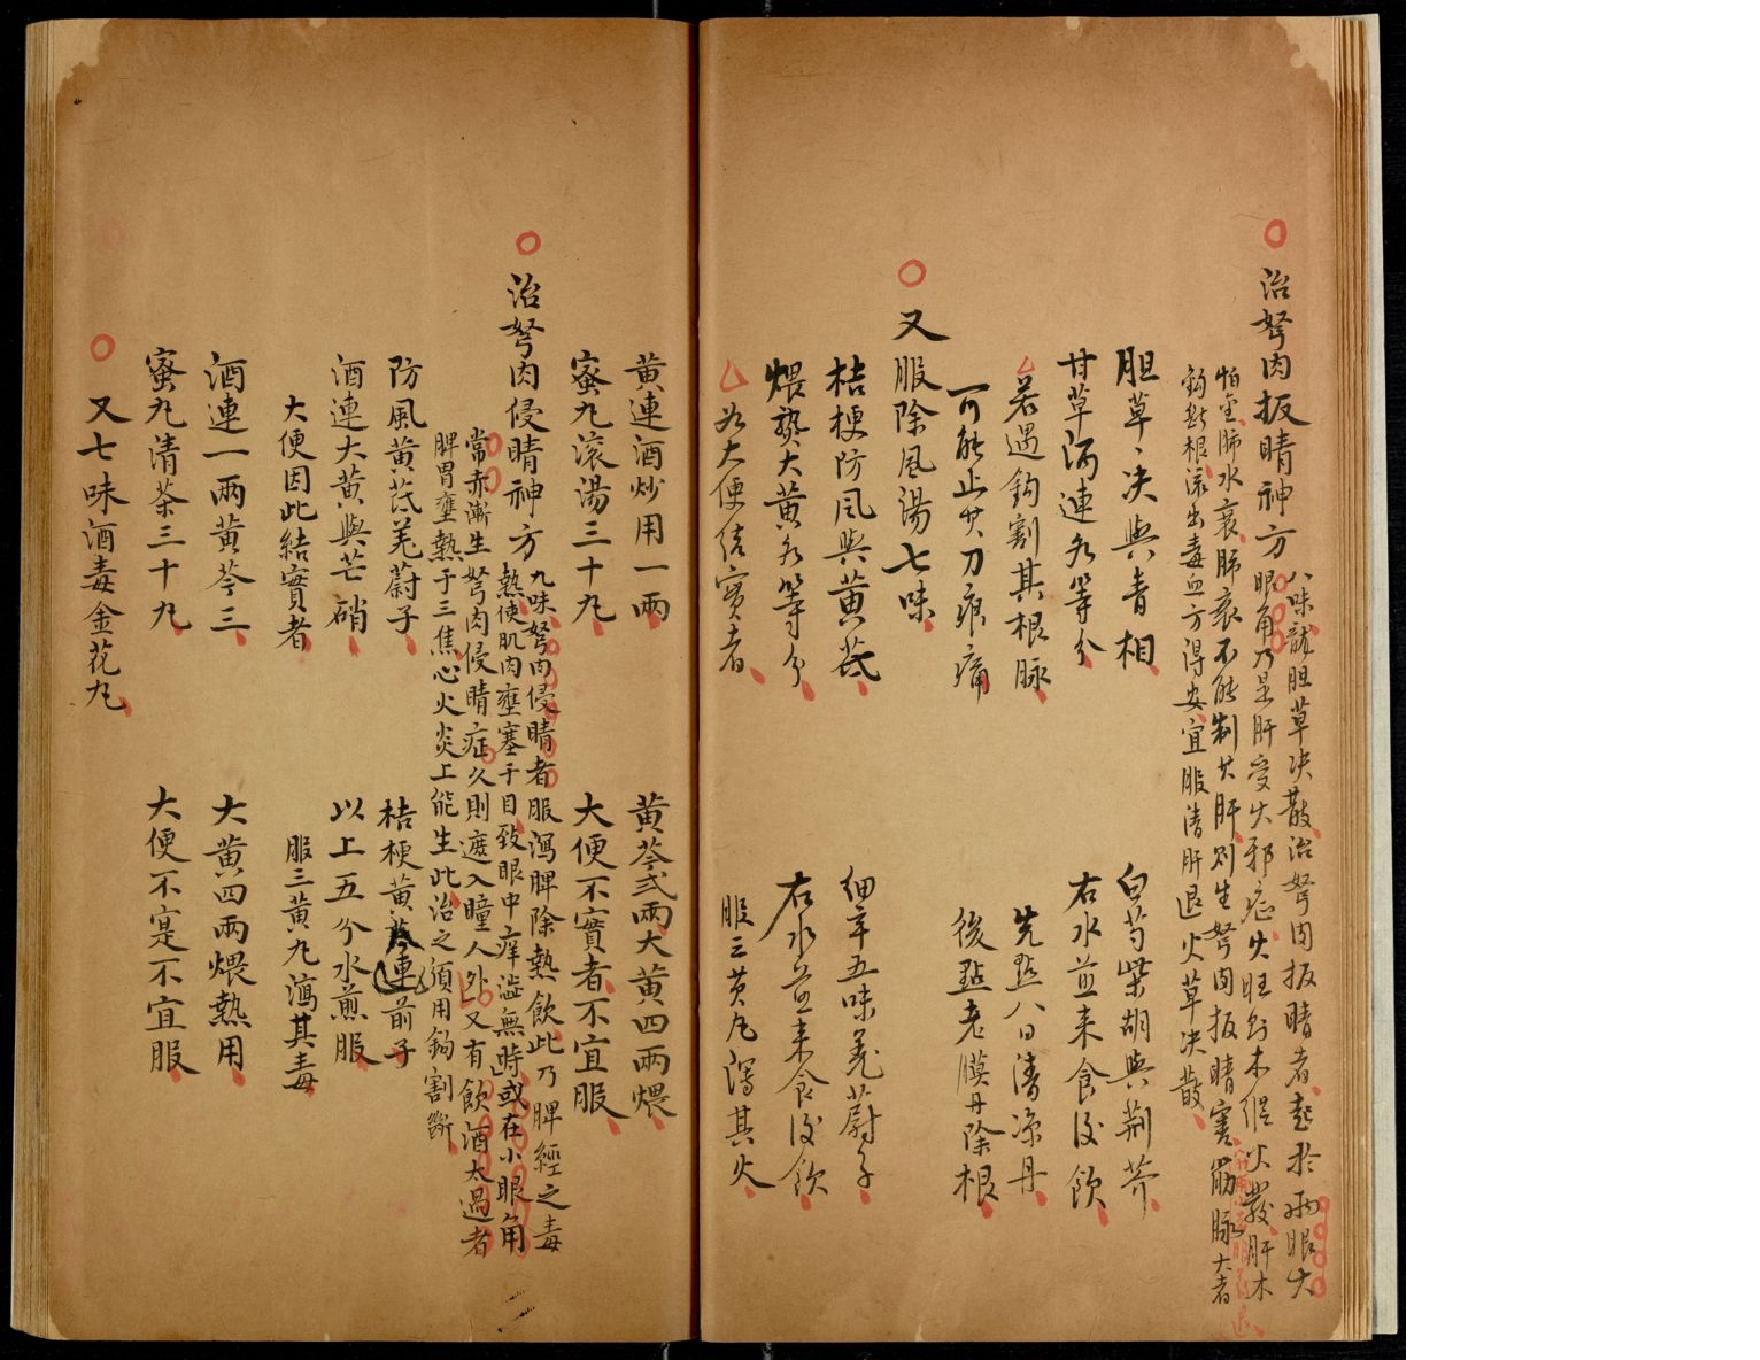 治弩肉扳睛神方
八味龍胆草决散治弩肉扳睛者起於兩眼大
眼角乃是肝受火邪症火旺則木傷火發肝木
怕金肺水衰肺衰不能制其肝則生弩肉扳睛害筋脉大者
鈎断根滚出毒血方得安宜服清肝退火草决散
胆草草决與青相 白芍柴胡與荆芥
甘草酒連各等分 右水煎来食後飲
若遇鈎割其根脉 先點八日清凉丹
可能止其刀痕痛 後點老膜丹除根
又服除風湯七味
桔梗防风與黄芪 细辛五味羗蔚子
煨熟大黄各等分 右水煎来食後飲
若大便結實者 服三黄丸瀉其火
黄連酒炒用一兩 黄芩弍兩大黄四兩煨
蜜丸滚湯三十丸 大便不實者不宜服
治弩肉侵睛神方
九味弩肉侵睛者服瀉脾除熱飲此乃脾經之毒
熱使肌肉壅塞于目致眼中痒澁無時或在小眼角
常赤漸生弩肉侵睛症久則遮入瞳人外又有飲酒太過者
脾胃壅熱于三焦心火炎上能生此治之須用鈎割断
防風黄芪羗蔚子 桔梗黄芩連前子
酒連大黄與芒硝 以上五分水煎服
大便因此結實者 服三黄丸瀉其毒
酒連一兩黄芩三 大黄四兩煨熱用
蜜丸清茶三十丸 大便不寔不宜服
又七味酒毒金花丸